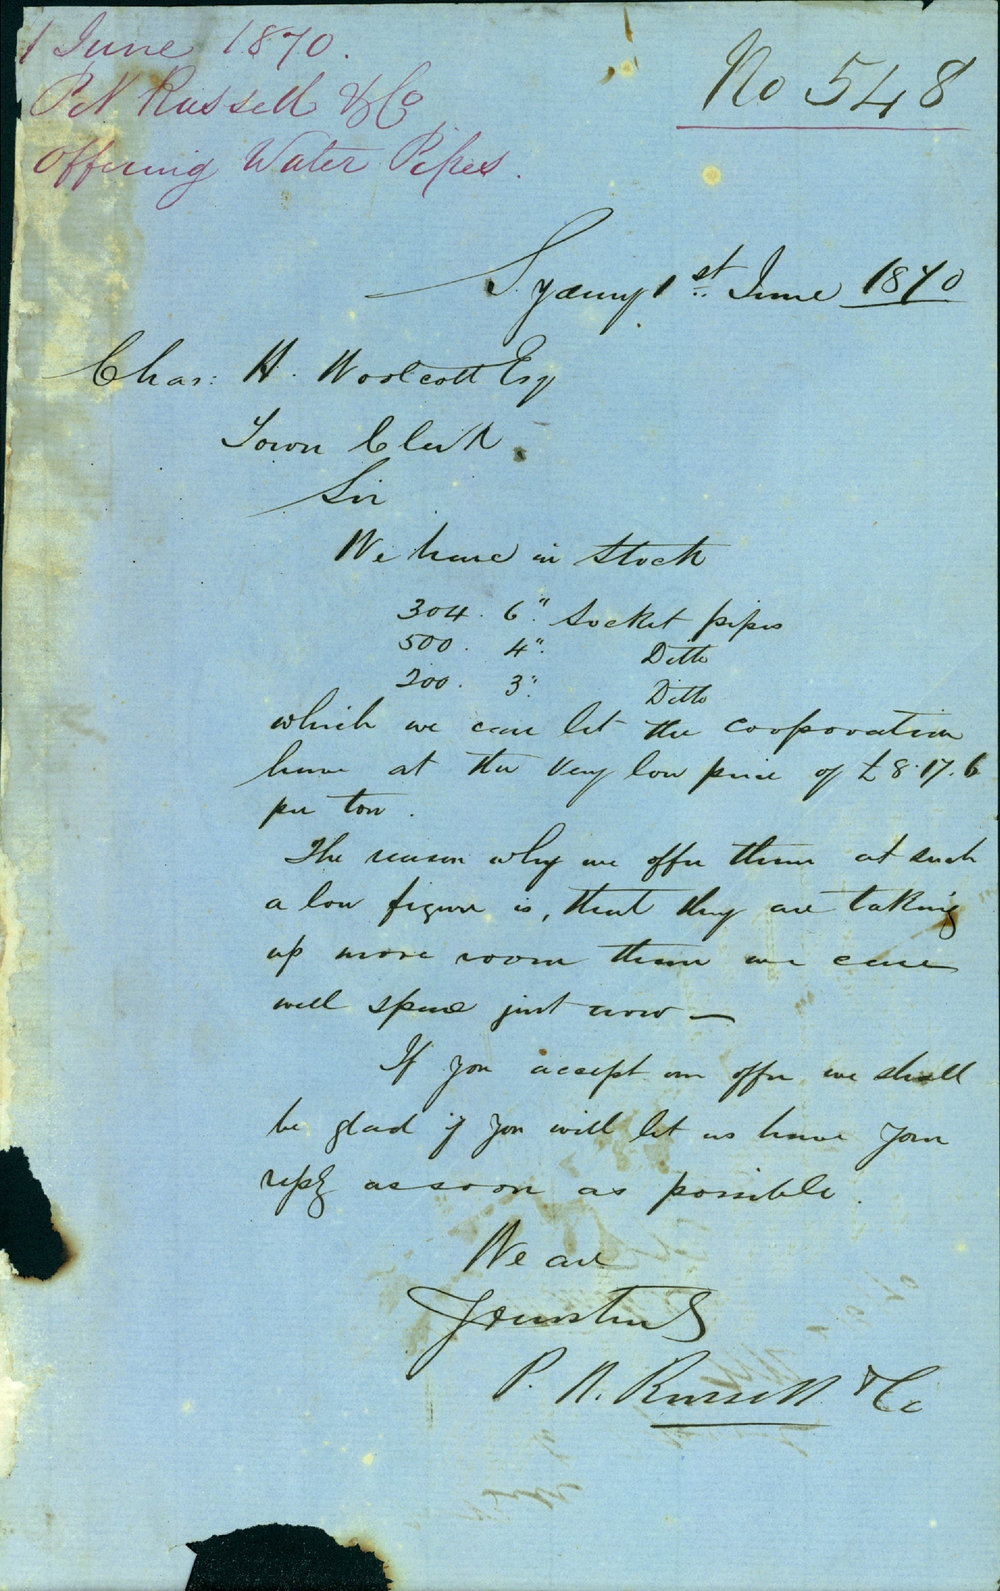 1 June 1870.
P N Russell & Co
Offering Water Pipes.
No 548
Sydney 1st June 1870
Chas: H. Woolcott Esq
Town Clerk
Sir
We have in stock
304. 6" Socket pipes
500. 4" Ditto
200. 3" Ditto
which we can let the corporation
have at the very low price of £8.17.6
per ton.
The reason why we offer them at such
a low figure is, that they are taking
up more room than we can
well spare just now —
If you accept our offer we shall
be glad if you will let us have your
reply as soon as possible.
We are
Yours truly
P. N. Russell & Co